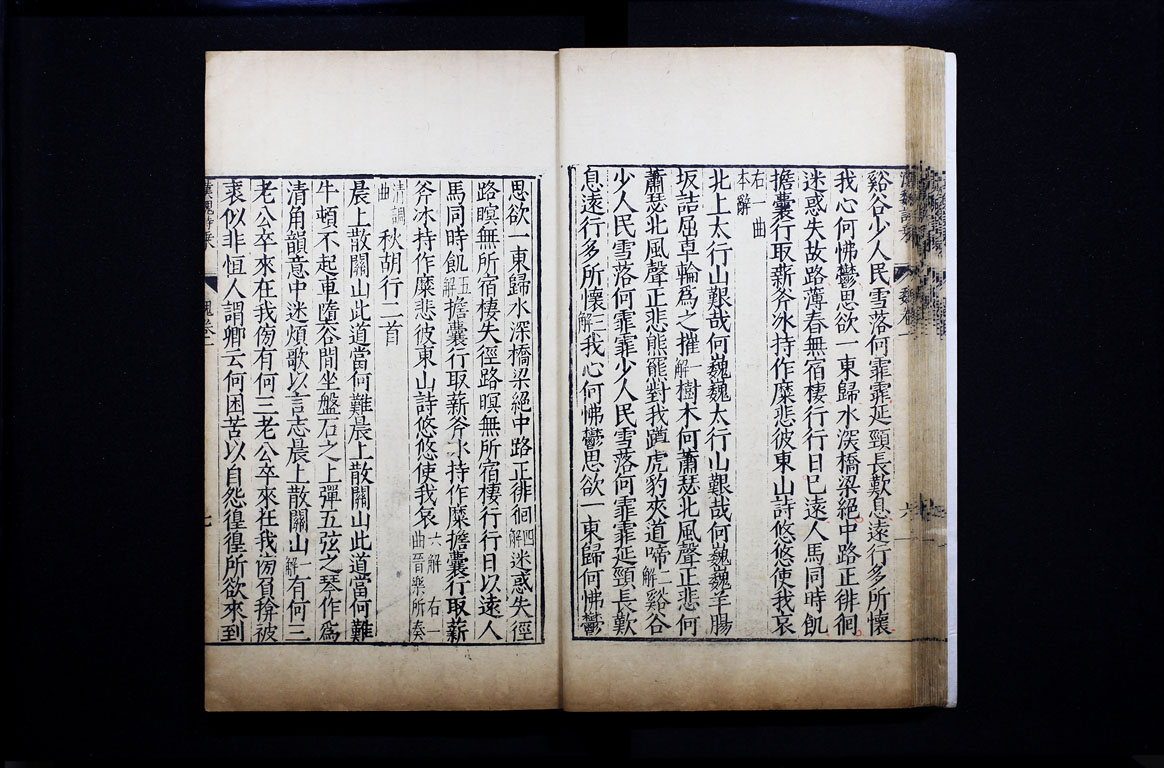 谿谷少人民雪落何霏霏延頸長歎息遠行多所懷
我心何怫鬱思欲一東歸水深橋梁絕中路正徘徊
迷惑失故路薄春無宿棲行行日已遠人馬同時飢
擔囊行取薪斧冰持作糜悲彼東山詩悠悠使我哀
右一曲
本辭
北上太行山艱哉何巍巍太行山艱哉何巍巍羊腸
坂詰屈車輪爲之摧一解樹木何蕭瑟北風聲正悲何
蕭瑟北風聲正悲熊羆對我蹲虎豹夾道啼二解谿谷
少人民雪落何霏霏少人民雪落何霏霏延頸長歎
息遠行多所懷三解我心何怫鬱思欲一東歸何怫鬱
思欲一東歸水深橋梁絕中路正徘徊四解迷惑失徑
路暝無所宿棲失徑路暝無所宿棲行行日以遠人
馬同時飢五解擔囊行取薪斧冰持作糜擔囊行取薪
斧冰持作糜悲彼東山詩悠悠使我哀六解右一曲晉樂所奏
清調曲
秋胡行二首
晨上散關山此道當何難晨上散關山此道當何難
牛頓不起車墮谷間坐盤石之上彈五弦之琴作爲
清角韻意中迷煩歌以言志晨上散關山一解有何三
老公卒來在我傍有何三老公卒來在我傍負揜被
裘似非恒人謂卿云何困苦以自怨徨徨所欲來到
漢魏詩乘
魏卷一
七